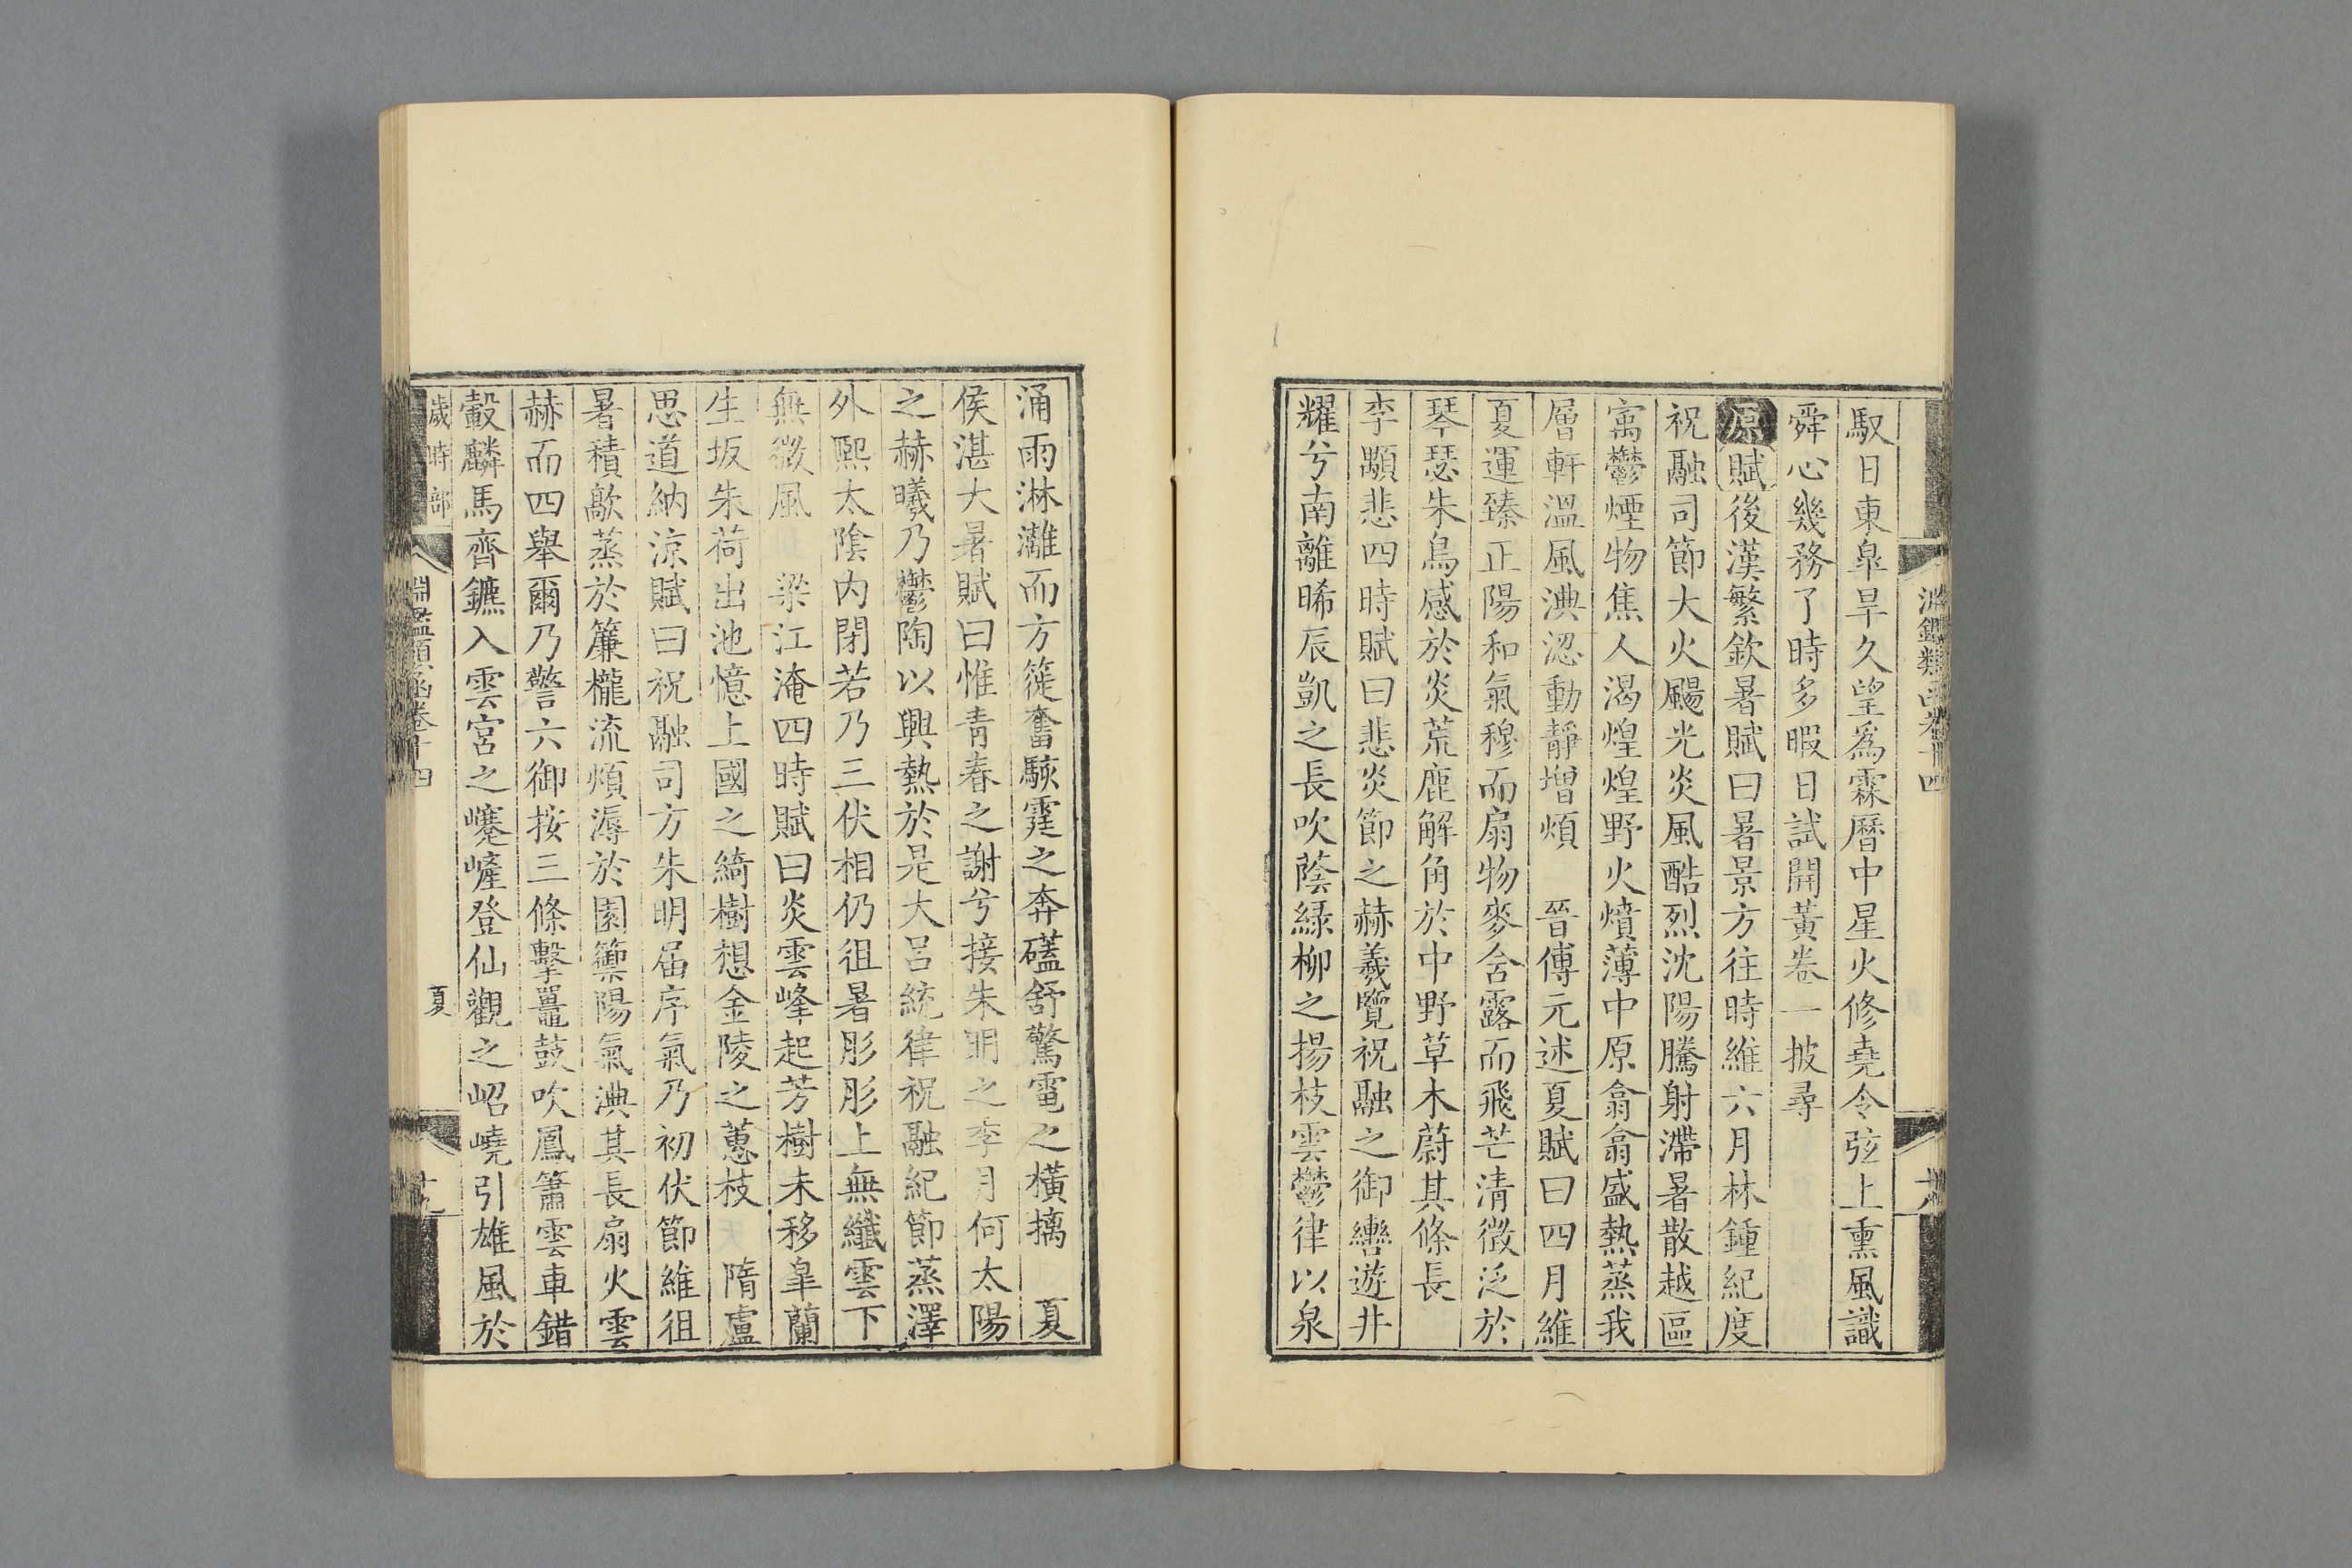 馭日東臯旱久望爲霖曆中星火修堯令弦上熏風識
舜心幾務了時多暇日試開黃卷一披尋
原賦後漢繁欽暑賦曰暑景方往時維六月林鍾紀度
祝融司節大火颺光炎風酷烈沈陽騰射滯暑散越區
寓鬱煙物焦人渴煌煌野火熿薄中原翕翕盛熱蒸我
層軒溫風淟涊動靜增煩 晉傅元述夏賦曰四月維
夏運臻正陽和氣穆而扇物麥含露而飛芒清徵泛於
琴瑟朱鳥感於炎荒鹿解角於中野草木蔚其條長
李顒悲四時賦曰悲炎節之赫羲覽祝融之御轡遊井
耀兮南離晞辰凱之長吹蔭綠柳之揚枝雲鬱律以泉
涌雨淋灕而方簁奮駭霆之奔礚舒驚電之橫摛 夏
侯湛大暑賦曰惟青春之謝兮接朱明之季月何太陽
之赫曦乃鬱陶以興熱於是大呂統律祝融紀節蒸澤
外熙太陰内閉若乃三伏相仍徂暑彤彤上無纖雲下
無微風 梁江淹四時賦曰炎雲峰起芳樹未移皐蘭
生坂朱荷出池憶上國之綺樹想金陵之蕙枝 隋盧
思道納涼賦曰祝融司方朱明屆序氣乃初伏節維徂
暑積歊蒸於簾櫳流煩溽於園籞陽氣淟其長扇火雲
赫而四舉爾乃警六御按三條擊鼉鼓吹鳳簫雲車錯
轂麟馬齊鑣入雲宮之㠍嵼登仙觀之岹嶢引雄風於
歲時部 淵鑑類函卷十四 夏